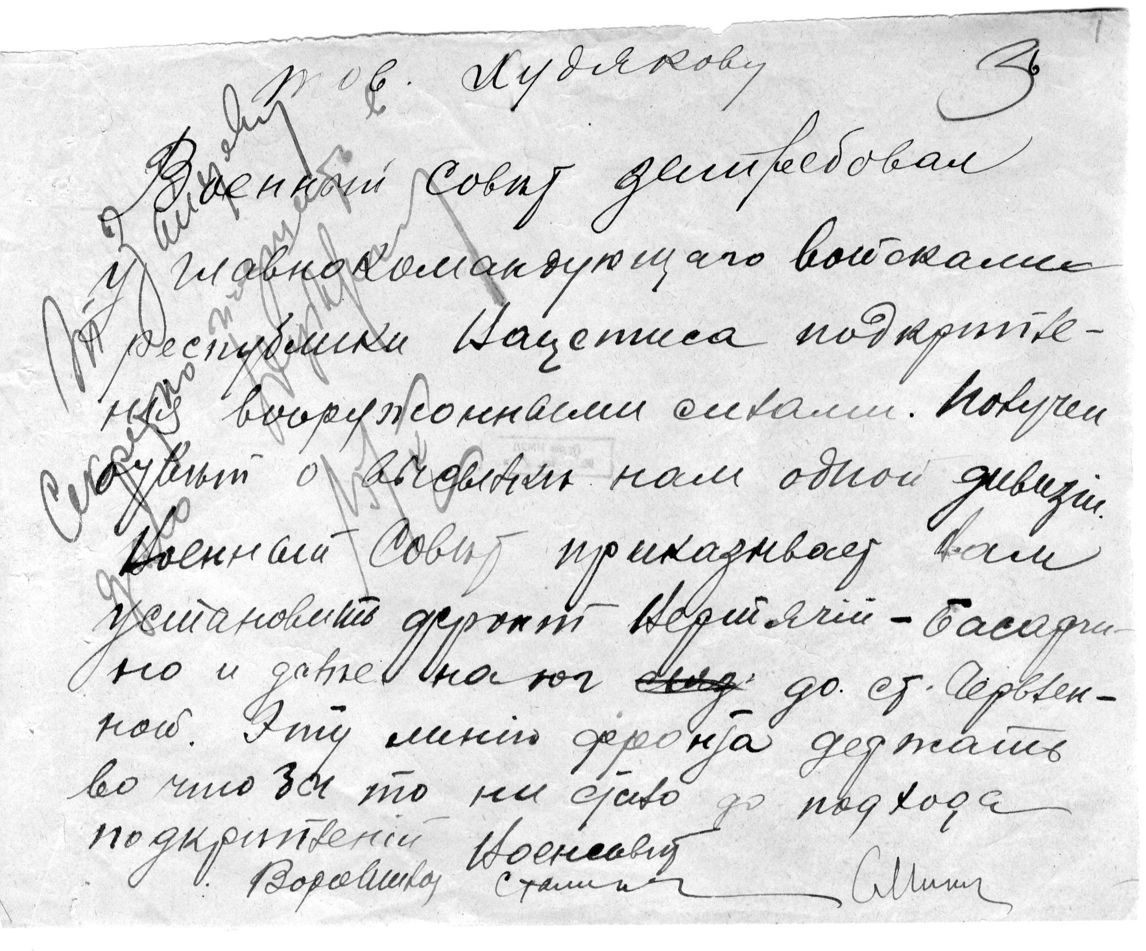 тов. Худякову
Военный совѣт затребовал
у главнокомандующаго войсками
республики Вацетиса подкрѣпле-
ния вооружонными силами. Получен
отвѣт о высылкѣ нам одной дивизіи.
Военный Совѣт приказывает Вам
установить фронт Вертячій - Басарги-
но и далѣе на юг до ст. Червлен-
ной. Эту линію фронта держать
во что бы то ни стало до подхода
подкрѣпленій Военсовѣт
Ворошилов Сталин С Минин
Секретно